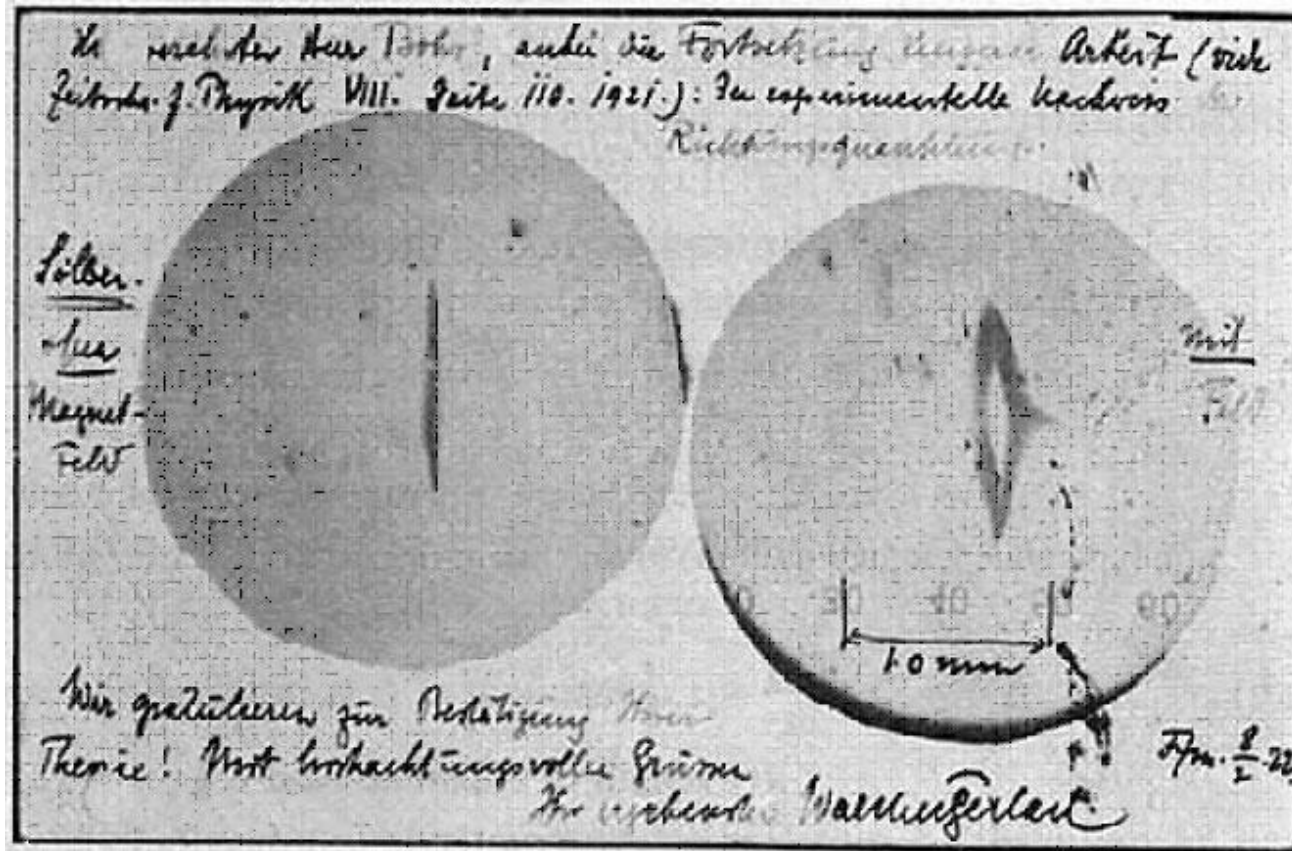 verehrter Herr Bohr, anbei die Fortsetzung unserer Arbeit (vide
Zeitschr. f. Physik VIII. Seite 110. 1921.): Der experimentelle Nachweis der
Richtungsquantelung.
Silber
Magnet-
Feld
mit
Feld
1.0 mm
Wir gratulieren zur Bestätigung Ihrer
Theorie! Mit hochachtungsvollen Grüssen
Ihr ergebenster Walther Gerlach.
Ffm. 8/2.22.